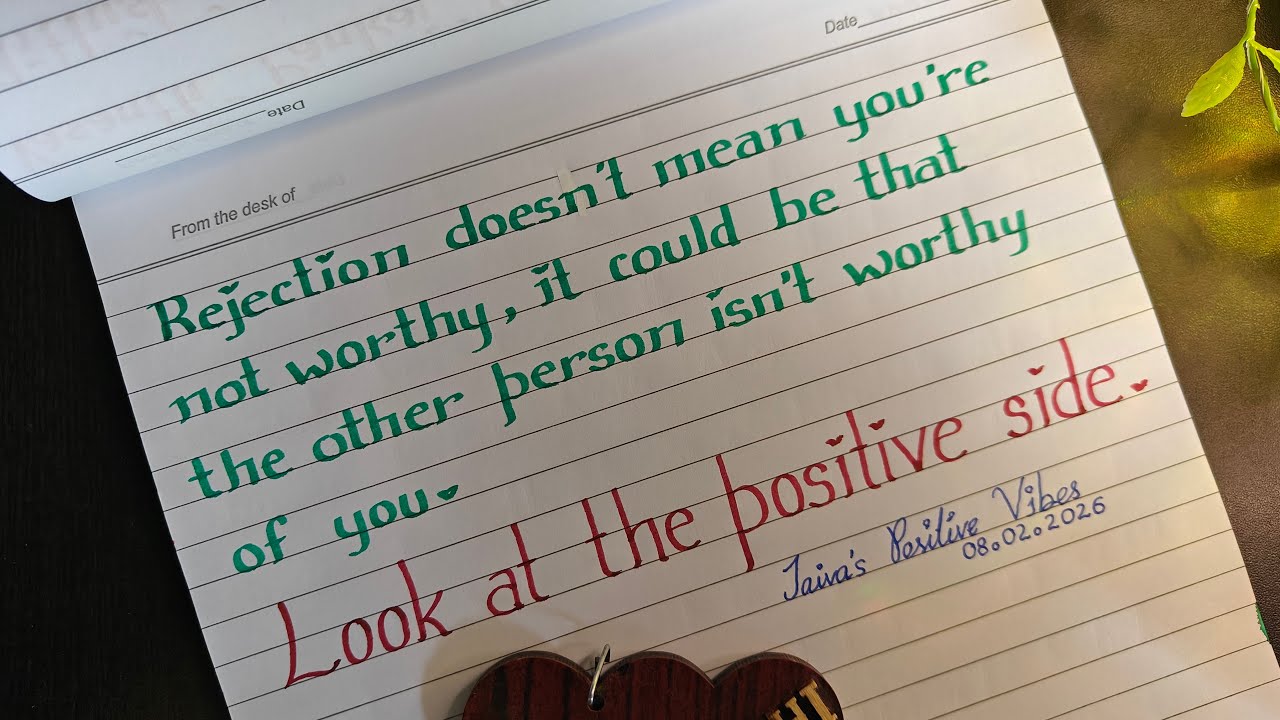 Date
Date
From the desk of
Rejection doesn't mean you're
not worthy, it could be that
the other person isn't worthy
of you.
Look at the positive side.
Jaiva's Positive Vibes
08.02.2026
HI